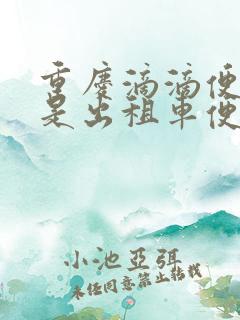 重庆滴滴便
是出租车便
小池亚弭
未经同意禁止转载